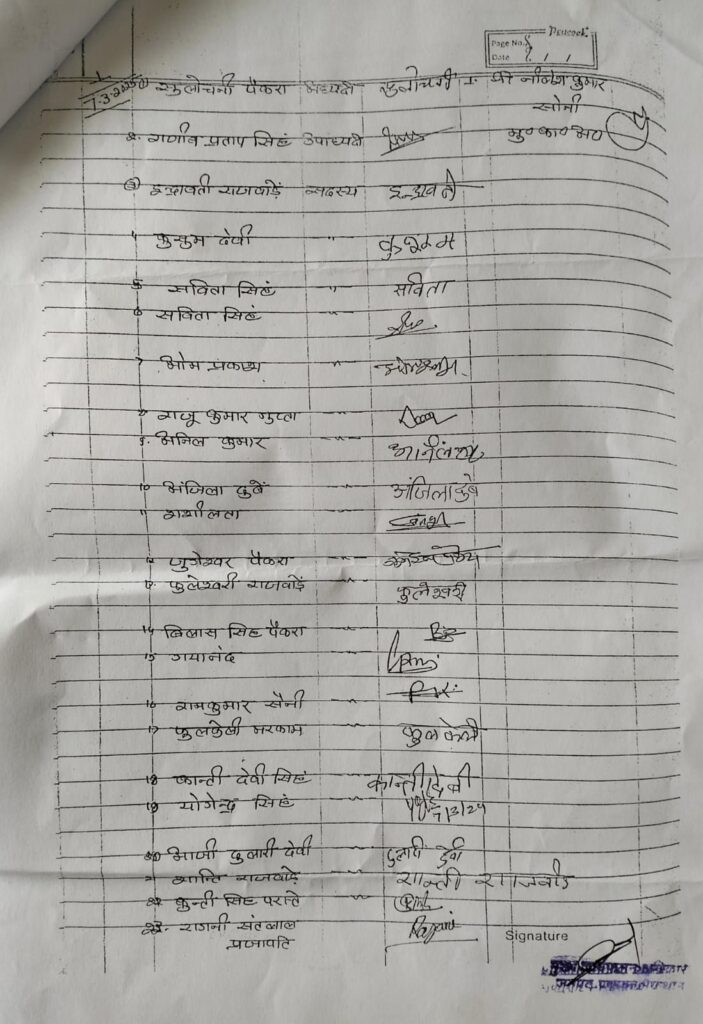 Peacock
Page No.
Date / /
7-3-2025 ① सुलोचनी पैकरा अध्यक्ष सुलोचनी
श्री नीलेश कुमार
सोनी
मु०का०अ०
2. राजीव प्रताप सिंह उपाध्यक्ष
③ इन्द्रावती राजवाड़े सदस्य इन्द्रावती
4 कुसुम देवी " कुसुम
5 सविता सिंह " सविता
6 सविता सिंह "
7 ओम प्रकाश "
8 राजू कुमार गुप्ता "
9. अनिल कुमार "
10 अंजिला दुबे " अंजिला दुबे
11 शशीलता "
12 जुगेश्वर पैकरा "
13. फुलेश्वरी राजवाड़े " फुलेश्वरी
14 बिलास सिंह पैकरा "
15 गयानंद "
16 रामकुमार सैनी "
17 फुलकेली मरकाम " फुलकेली
18 कान्ती देवी सिंह " कान्ती देवी
19 योगेन्द्र सिंह " 7/3/25
20 भागी दुलारी देवी " दुलारी देवी
21 शान्ति राजवाड़े " शान्ती राजवाड़े
22 कुन्ती सिंह परस्ते "
23. रजनी संतलाल " Rajani
प्रजापति
Signature